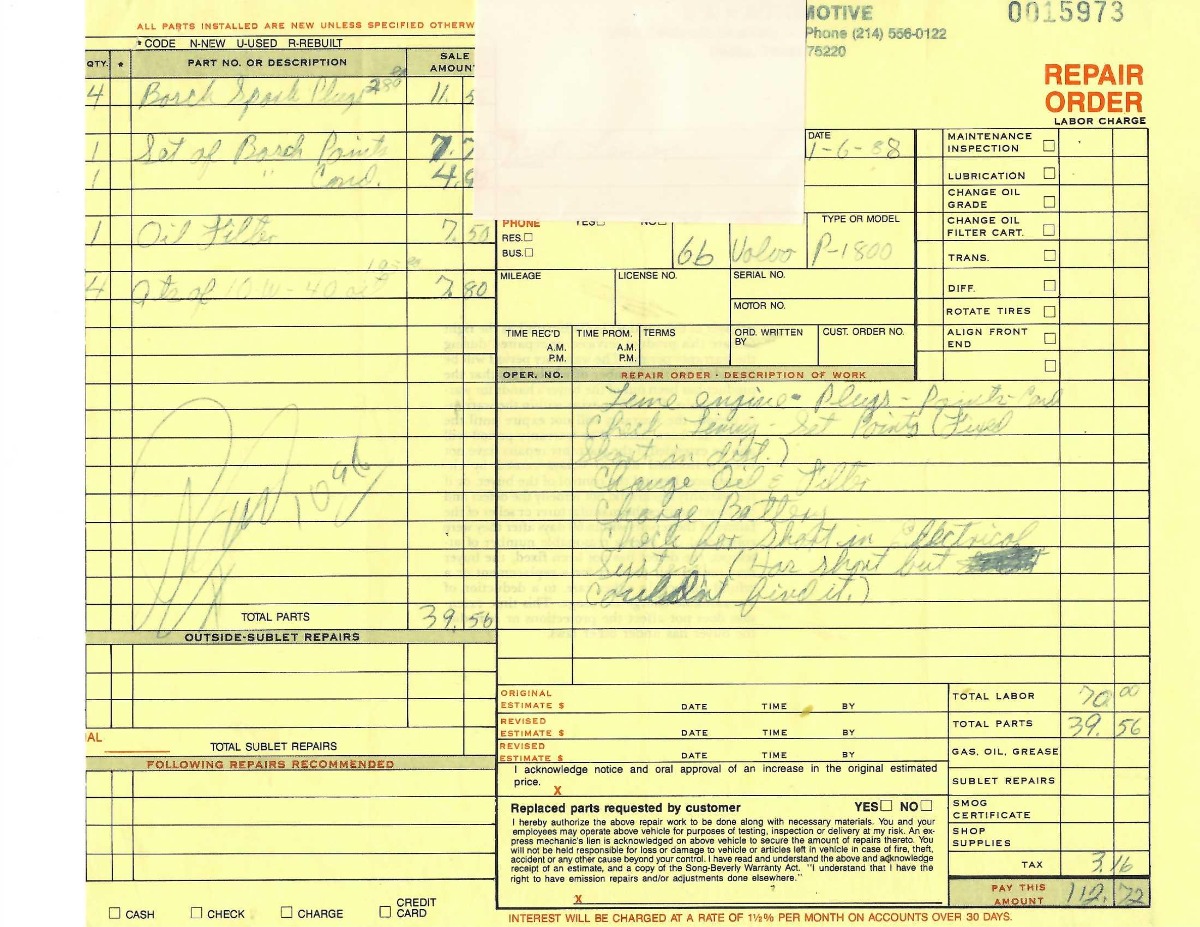 ALL PARTS INSTALLED ARE NEW UNLESS SPECIFIED OTHERW
* CODE N-NEW U-USED R-REBUILT
QTY. * PART NO. OR DESCRIPTION SALE AMOUN
4 Bosch Spark Plugs 11.
1 Set of Bosch Points 7.7
1 " Cond. 4.9
1 Oil Filter 7.50
4 Qts of 10-W-40 7.80
TOTAL PARTS 39.56
OUTSIDE-SUBLET REPAIRS
AL
TOTAL SUBLET REPAIRS
FOLLOWING REPAIRS RECOMMENDED
CASH CHECK CHARGE CREDIT CARD
MOTIVE
Phone (214) 556-0122
75220
0015973
REPAIR
ORDER
LABOR CHARGE
DATE
1-6-88
PHONE YES NO
RES.
BUS.
TYPE OR MODEL
66 Volvo P-1800
MILEAGE LICENSE NO. SERIAL NO.
MOTOR NO.
TIME REC'D A.M. P.M. TIME PROM. A.M. P.M. TERMS ORD. WRITTEN BY CUST. ORDER NO.
MAINTENANCE INSPECTION
LUBRICATION
CHANGE OIL GRADE
CHANGE OIL FILTER CART.
TRANS.
DIFF.
ROTATE TIRES
ALIGN FRONT END
OPER. NO. REPAIR ORDER - DESCRIPTION OF WORK
engine - Plugs - Points - Cond
Check Timing - Set Points (Fixed
Short in dist.)
Change Oil & Filter
Charge Battery
Check for Short in Electrical
System (Has short but
Couldnt find it.)
ORIGINAL ESTIMATE $ DATE TIME BY
REVISED ESTIMATE $ DATE TIME BY
REVISED ESTIMATE $ DATE TIME BY
I acknowledge notice and oral approval of an increase in the original estimated
price.
X
Replaced parts requested by customer YES NO
I hereby authorize the above repair work to be done along with necessary materials. You and your
employees may operate above vehicle for purposes of testing, inspection or delivery at my risk. An ex-
press mechanic's lien is acknowledged on above vehicle to secure the amount of repairs thereto. You
will not be held responsible for loss or damage to vehicle or articles left in vehicle in case of fire, theft,
accident or any other cause beyond your control. I have read and understand the above and acknowledge
receipt of an estimate, and a copy of the Song-Beverly Warranty Act. "I understand that I have the
right to have emission repairs and/or adjustments done elsewhere."
X
INTEREST WILL BE CHARGED AT A RATE OF 1½% PER MONTH ON ACCOUNTS OVER 30 DAYS.
TOTAL LABOR 70 00
TOTAL PARTS 39.56
GAS, OIL, GREASE
SUBLET REPAIRS
SMOG CERTIFICATE
SHOP SUPPLIES
TAX 3.16
PAY THIS AMOUNT 112.72